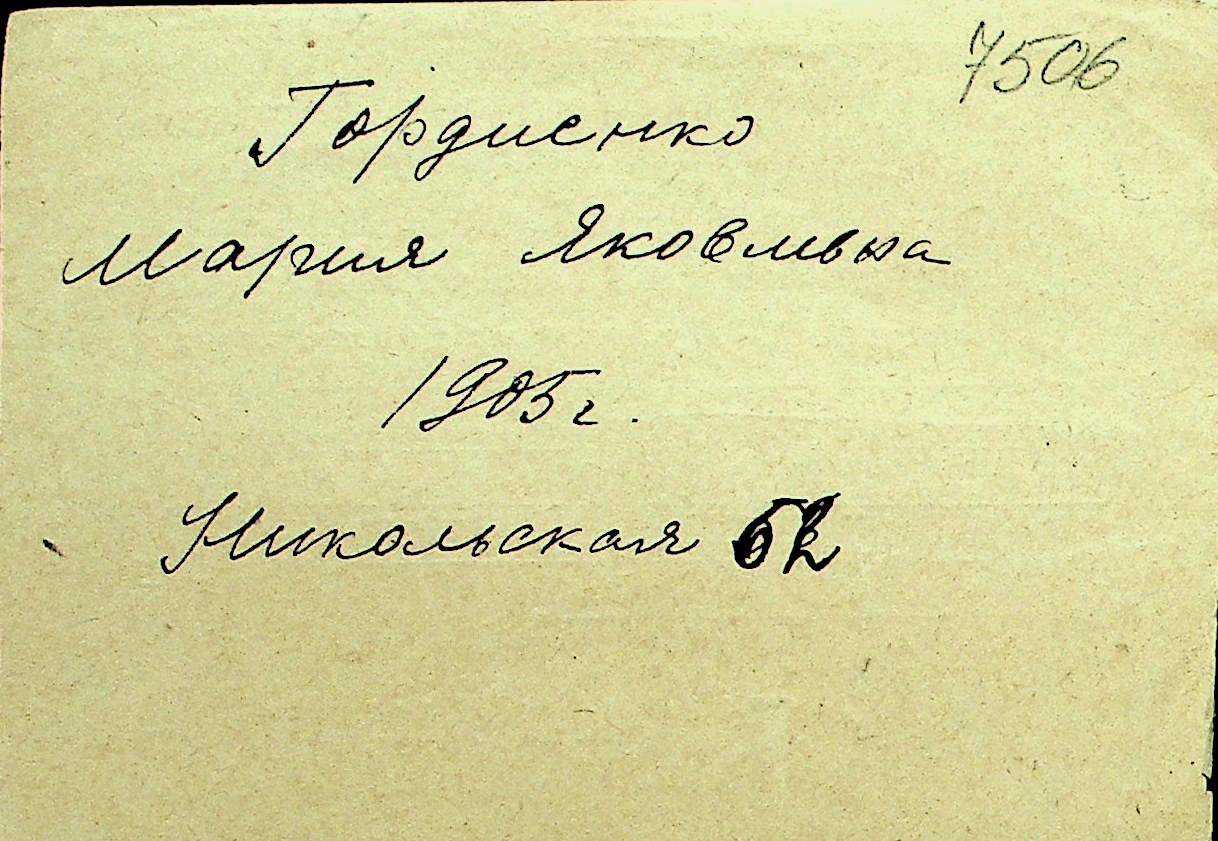 7506
Гордиенко
Мария Яковлевна
1905 г.
Никольская